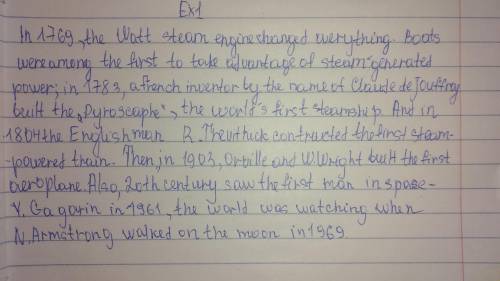 Ex1
In 1769, the Watt steam engine changed werything. Boats
were among the first to take advantage of steam-generated
power; in 1783, a french inventor by the name of Claude de Jouffroy
built the „Pyroscaphe", the world's first steamship. And in
1804 the Englishman R. Trevithick contructed the first steam-
-powered train. Then, in 1903, Orville and W. Wright built the first
aeroplane. Also, 20th century saw the first man in spase-
Y. Gagarin in 1961, the world was watching when
N. Armstrong walked on the moon in 1969